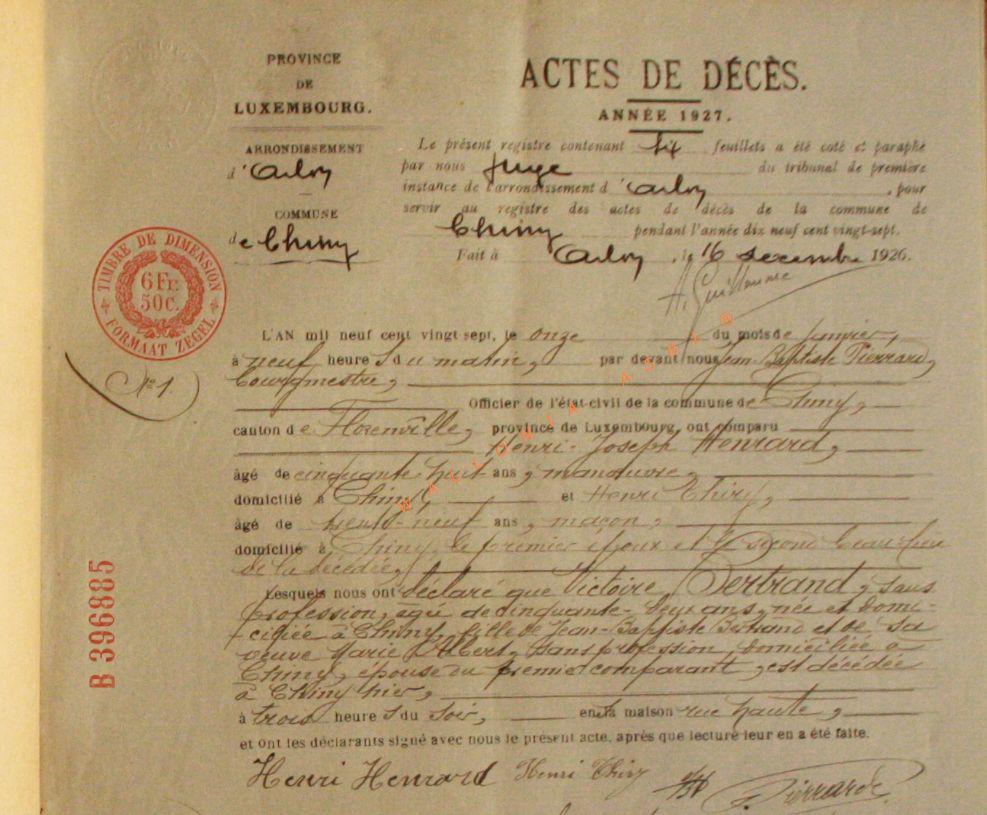 PROVINCE
DE
LUXEMBOURG.
ARRONDISSEMENT
d'Arlon
COMMUNE
de Chiny
TIMBRE DE DIMENSION
6 Fr.
50 C.
FORMAAT ZEGEL
ACTES DE DÉCÈS.
ANNÉE 1927.
Le présent registre contenant feuillets a été coté et paraphé
par nous Juge du tribunal de première
instance de l'arrondissement d'Arlon, pour
servir au registre des actes de décès de la commune de
Chiny pendant l'année dix neuf cent vingt-sept.
Fait à Arlon, le 16 décembre 1926.
A. Guillaume
N° 1.
L'AN mil neuf cent vingt-sept, le onze du mois de janvier,
à neuf heures du matin, par devant nous Jean Baptiste Pierrard,
bourgmestre,
Officier de l'état-civil de la commune de Chiny,
canton de Florenville, province de Luxembourg, ont comparu
Henri-Joseph Henrard,
âgé de cinquante huit ans, manœuvre,
domicilié à Chiny, et Henri Thiry,
âgé de trente-neuf ans, maçon,
domicilié à Chiny, le premier époux et le second beau-frère
de la décédée,
Lesquels nous ont déclaré que Victoire Bertrand, sans
profession, âgée de cinquante-deux ans, née et domi-
ciliée à Chiny, fille de Jean-Baptiste Bertrand et de sa
veuve Marie Albert, sans profession, domiciliée à
Chiny, épouse du premier comparant, est décédée
à Chiny hier,
à trois heures du soir, en sa maison rue haute,
et ont les déclarants signé avec nous le présent acte, après que lecture leur en a été faite.
Henri Henrard Henri Thiry Pierrard
B 396885